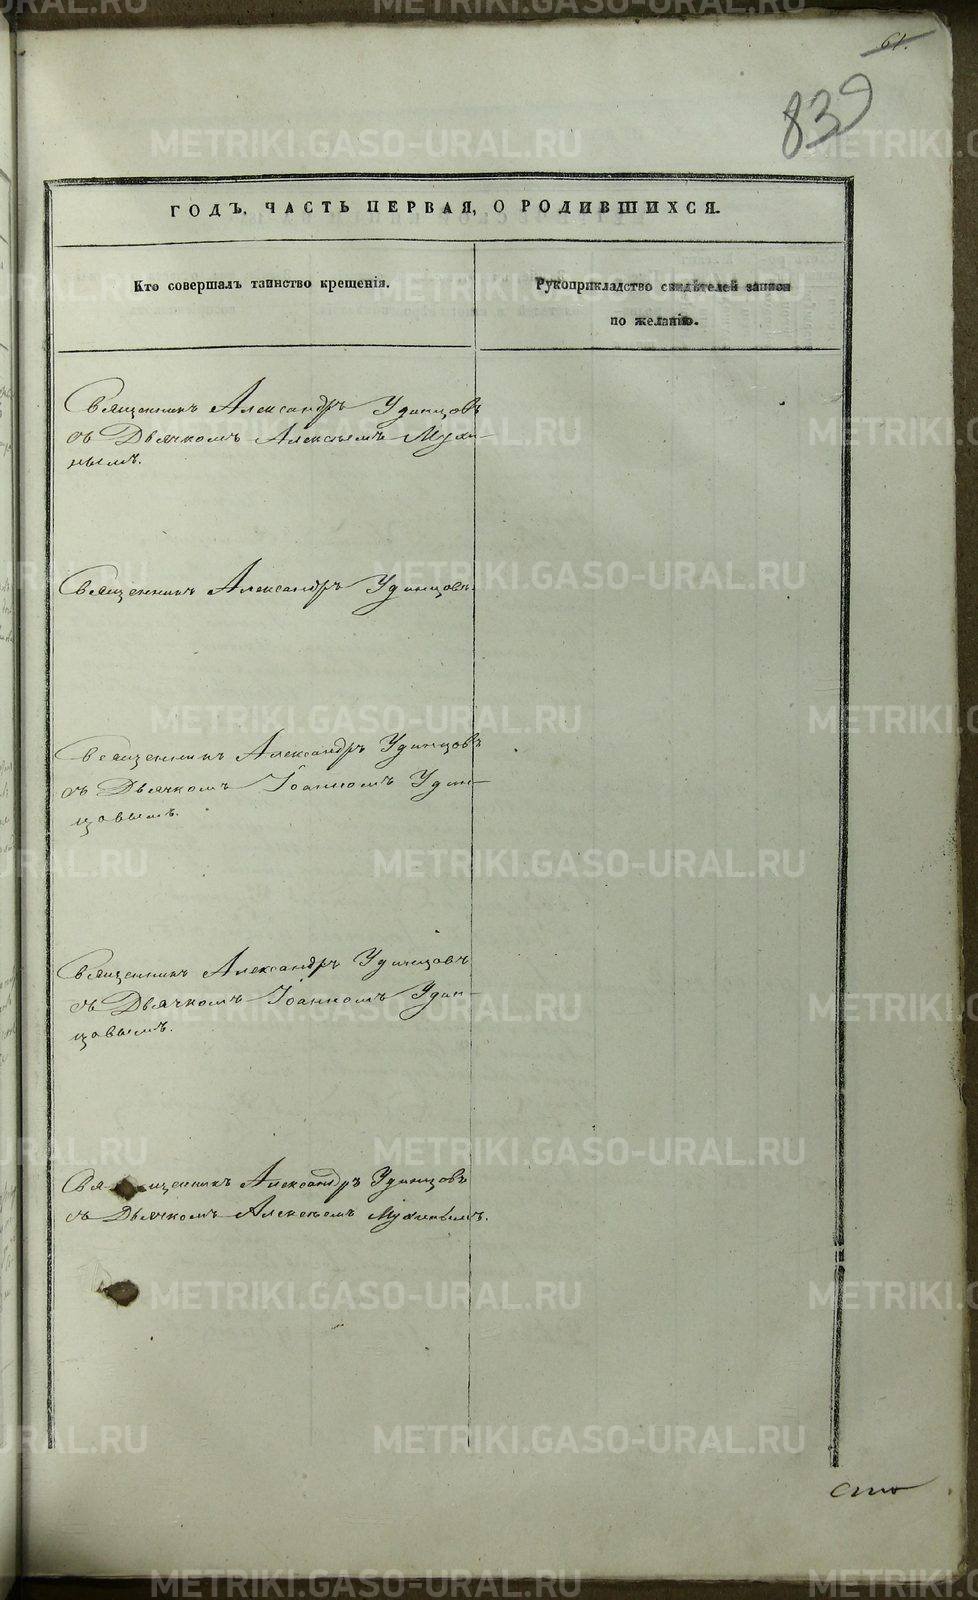 61.
839
ГОДЪ, ЧАСТЬ ПЕРВАЯ, О РОДИВШИХСЯ.
Кто совершалъ таинство крещенія.
Рукоприкладство свидѣтелей записи
по желанію.
Священникъ Александръ Удинцовъ
съ Дьячкомъ Алексѣемъ Мухи-
нымъ.
Священникъ Александръ Удинцовъ.
Священникъ Александръ Удинцовъ
съ Дьячкомъ Іоанномъ Удин-
цовымъ.
Священникъ Александръ Удинцовъ
съ Дьячкомъ Іоанномъ Удин-
цовымъ.
Священникъ Александръ Удинцовъ
съ Дьячкомъ Алексѣемъ Мухинымъ.
METRIKI.GASO-URAL.RU